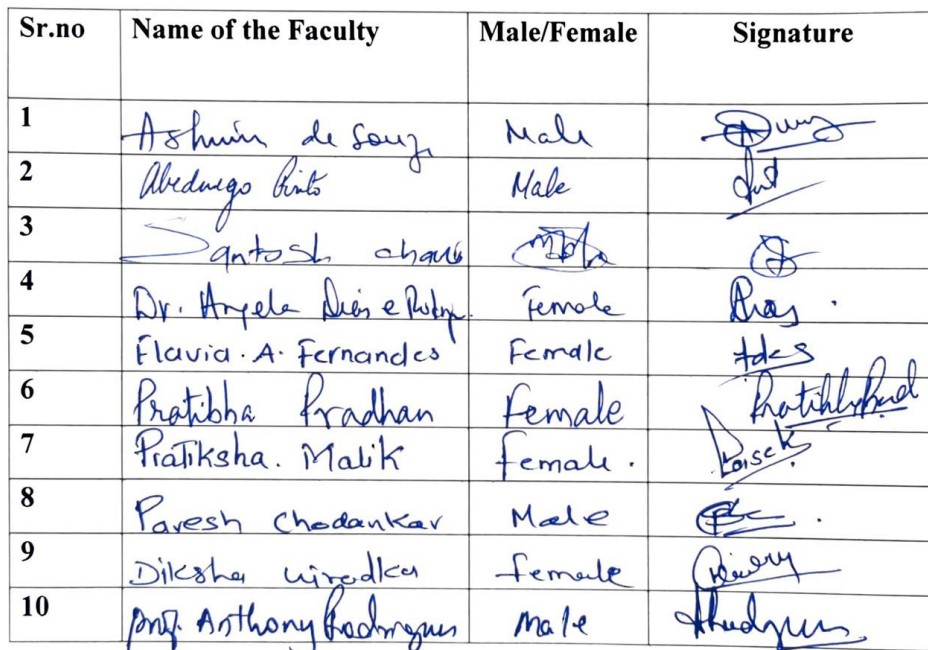 Sr.no Name of the Faculty Male/Female Signature
1 Ashwin de Souz Male
2 Abednego Pinto Male
3 Santosh chari
4 Dr. Angela Dias e Rodrig. Female
5 Flavia. A. Fernandes Female
6 Pratibha Pradhan Female
7 Pratiksha. Malik female.
8 Paresh Chodankar Male
9 Diksha female
10 prof. Anthony Rodrigues Male